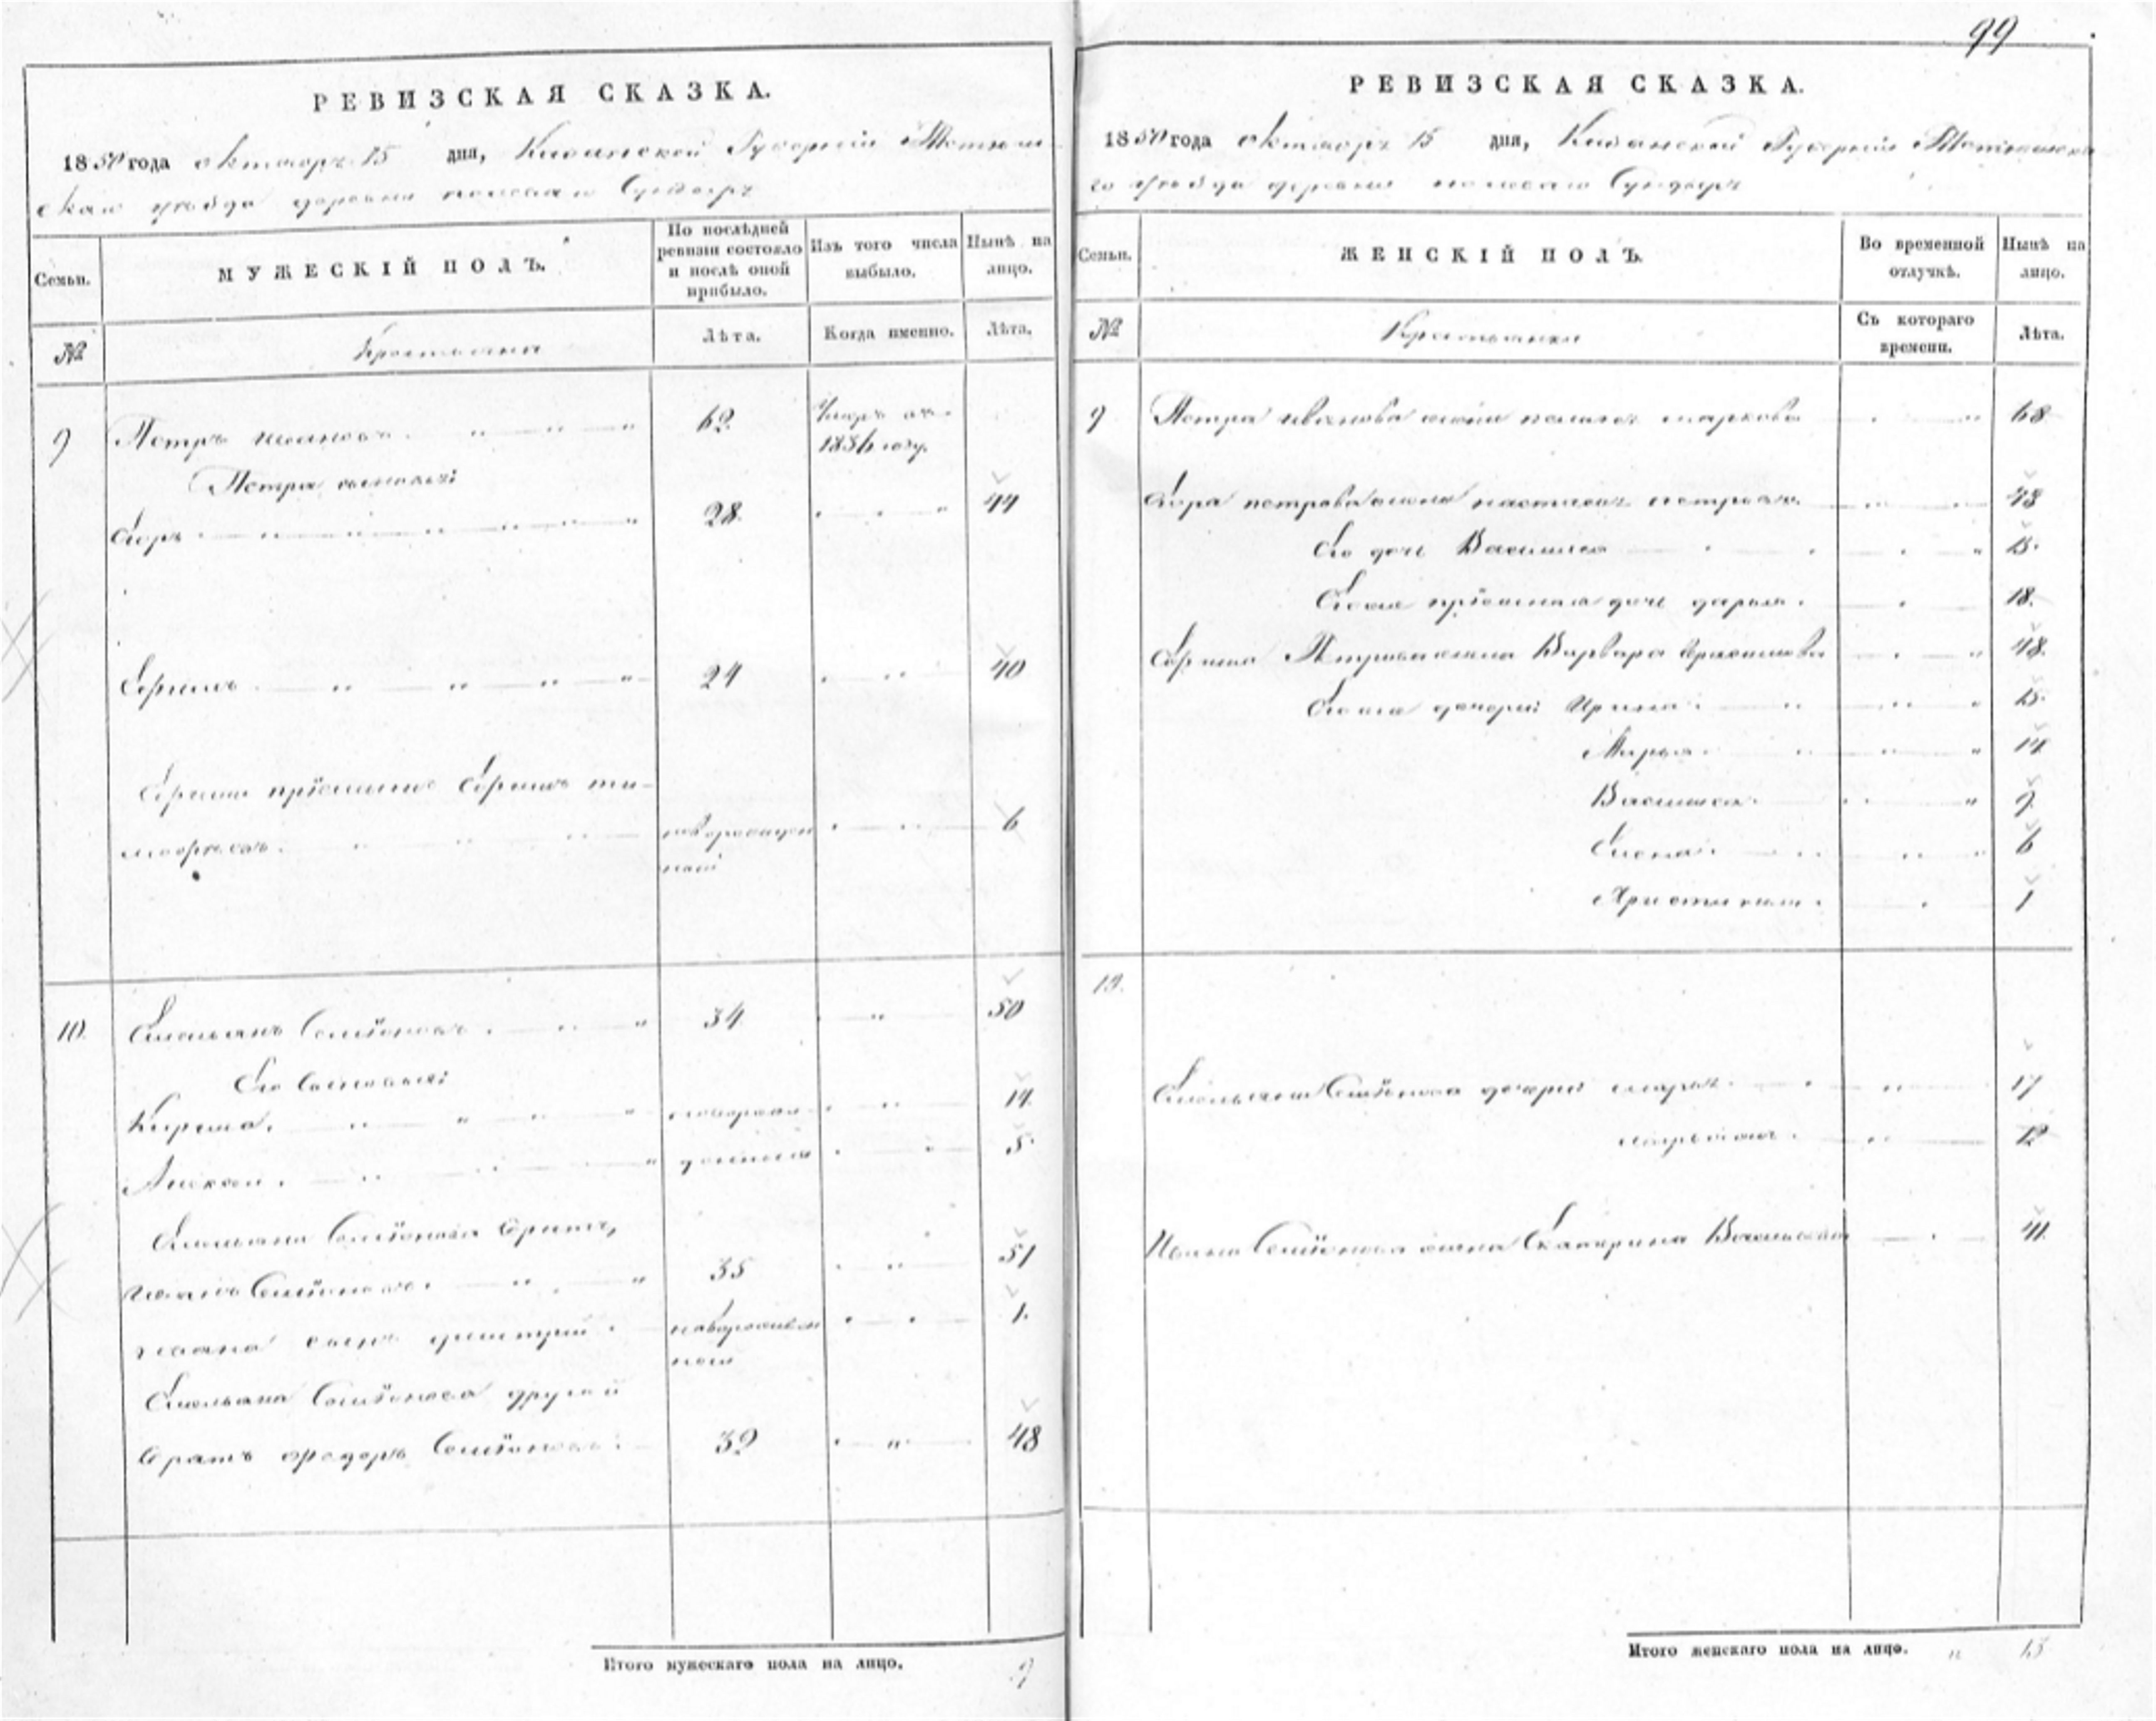 99
РЕВИЗСКАЯ СКАЗКА.
1850 года октября 15 дня, Казанской Губернии Тетюш-
скаго уезда деревни Сундырь
Семьи.
МУЖЕСКІЙ ПОЛЪ.
По послѣдней ревизіи состояло и послѣ оной прибыло.
Изъ того числа выбыло.
Нынѣ на лицо.
№
Крестьяне
Лѣта.
Когда именно.
Лѣта.
9 Петръ Ивановъ 62 Умеръ въ
1836 году.
Петра сыновья:
Егоръ 28 44
Ефимъ 24 40
Ефима пріемышъ Ефимъ ти-
мофеевъ новорожден 6
ный
10. Емельянъ Семёновъ 34 50
Его Сыновья:
Кирила новорож 14
Алексей денные 5
Емельяна Семёнова братъ,
Иванъ Семёновъ 35 51
Ивана сынъ Дмитрий новорожден 1.
ной
Емельяна Семёнова другой
братъ Федоръ Семёновъ 32 48
Итого мужескаго пола на лицо. 9
РЕВИЗСКАЯ СКАЗКА.
1850 года октября 15 дня, Казанской Губернии Тетюшска
го уезда деревни Сундырь
Семьи.
ЖЕНСКІЙ ПОЛЪ.
Во временной отлучкѣ.
Нынѣ на лицо.
№
Крестьянки
Съ котораго времени.
Лѣта.
9 Петра Иванова жена маркова 68
Егора петрова жена настасья петрова 48
Его дочь Василиса 15.
Его же пріемная дочь дарья. 18.
Ефима Петрова жена Варвара 48.
Его же дочери: Ирина 15.
Марья 14
Василиса 9
Елена 6
Христина 1
10.
Емельяна Семёнова дочери марья 17
12
Ивана Семёнова жена Екатерина Васильева 41.
Итого женскаго пола на лицо. 13